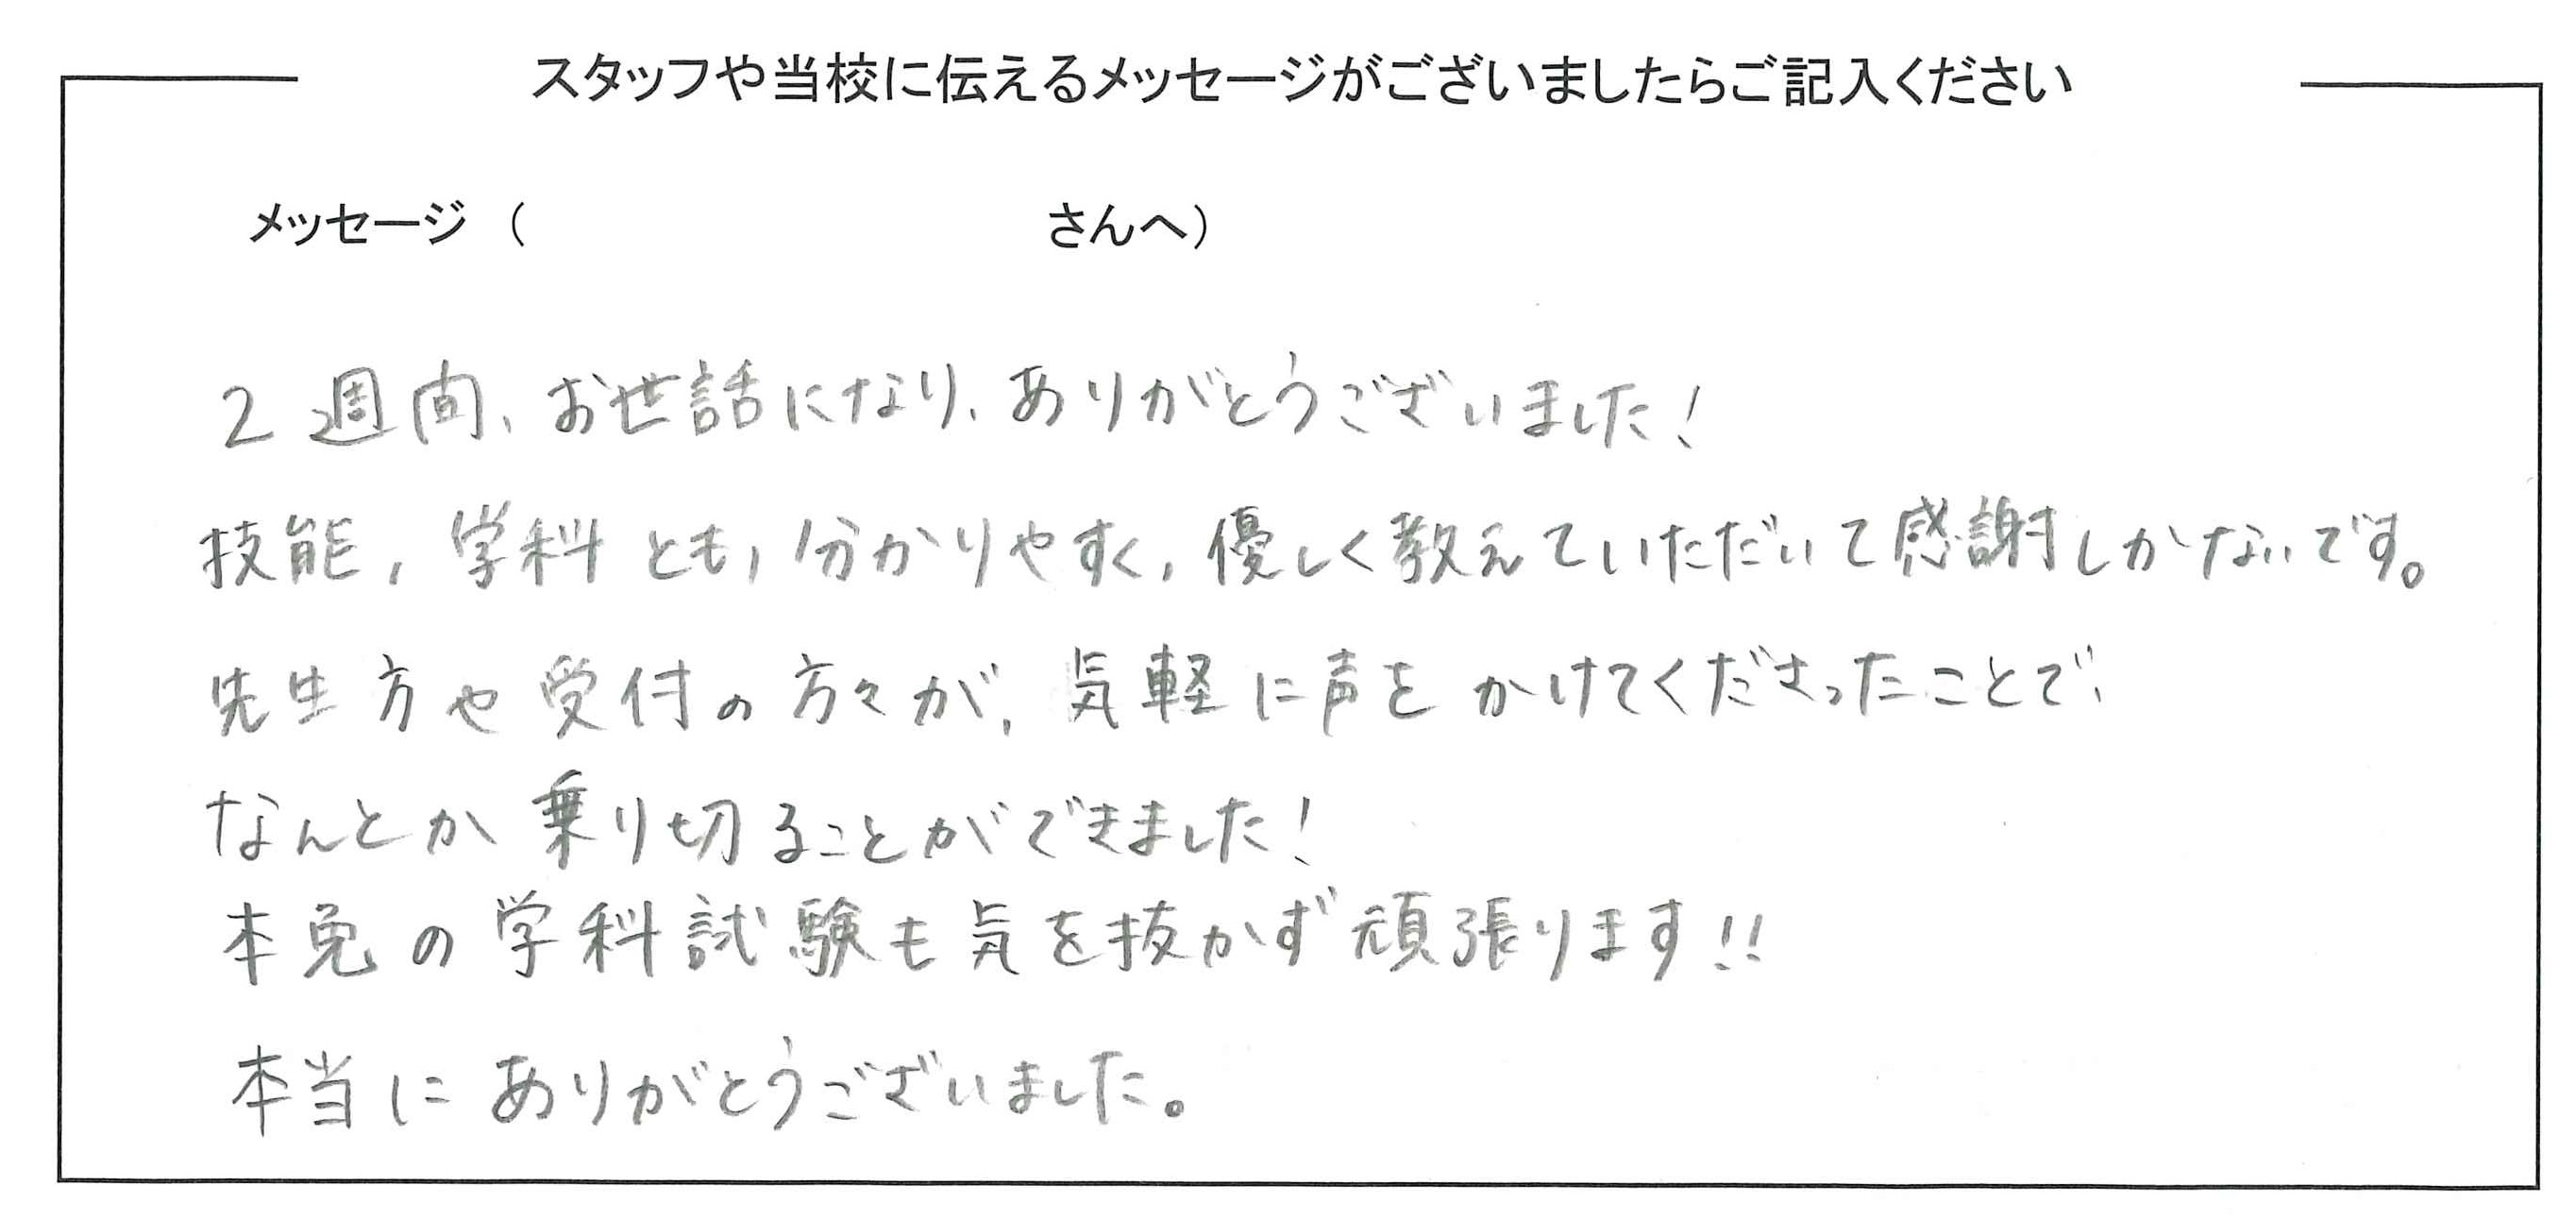 スタッフや当校に伝えるメッセージがございましたらご記入ください
メッセージ（　　　　　　　　　　さんへ）
2週間、お世話になり、ありがとうございました！
技能，学科とも，分かりやすく，優しく教えていただいて感謝しかないです。
先生方や受付の方々が，気軽に声をかけてくださったことで、
なんとか乗り切ることができました！
本免の学科試験も気を抜かず頑張ります!!
本当にありがとうございました。